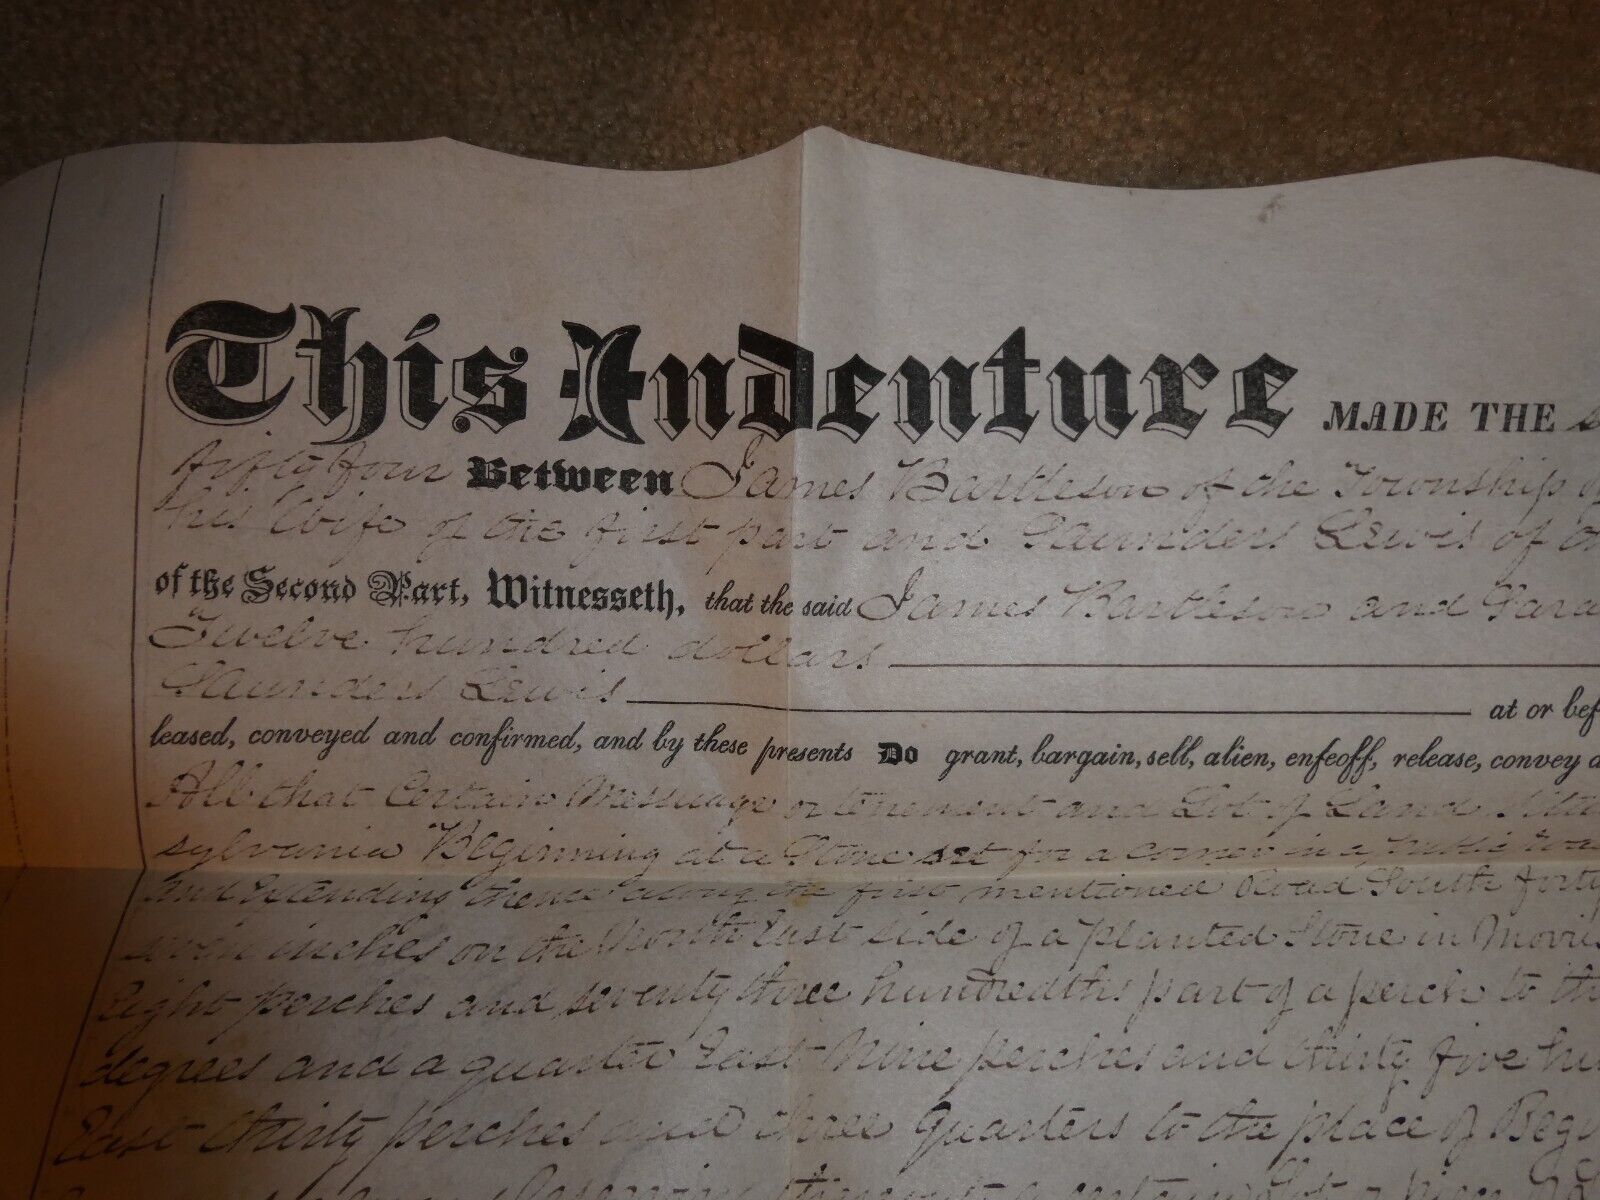 This Indenture MADE THE
fifty four Between James Bartleson of the Township
his Wife of the first part and Saunders Lewis of
of the Second Part, Witnesseth, that the said James Bartleson and Sara
Twelve hundred dollars
Saunders Lewis at or bef
leased, conveyed and confirmed, and by these presents Do grant, bargain, sell, alien, enfeoff, release, convey a
All that Certain Messuage or tenement and Lot of Land Situ
sylvania Beginning at a Stone set for a corner in a public roa
and Extending thence along the first mentioned Road South forty
seven inches on the North East side of a planted Stone in Morris
Eight perches and seventy three hundredths part of a perch to th
degrees and a quarter East Nine perches and thirty five hu
East thirty perches and three quarters to the place of Begi